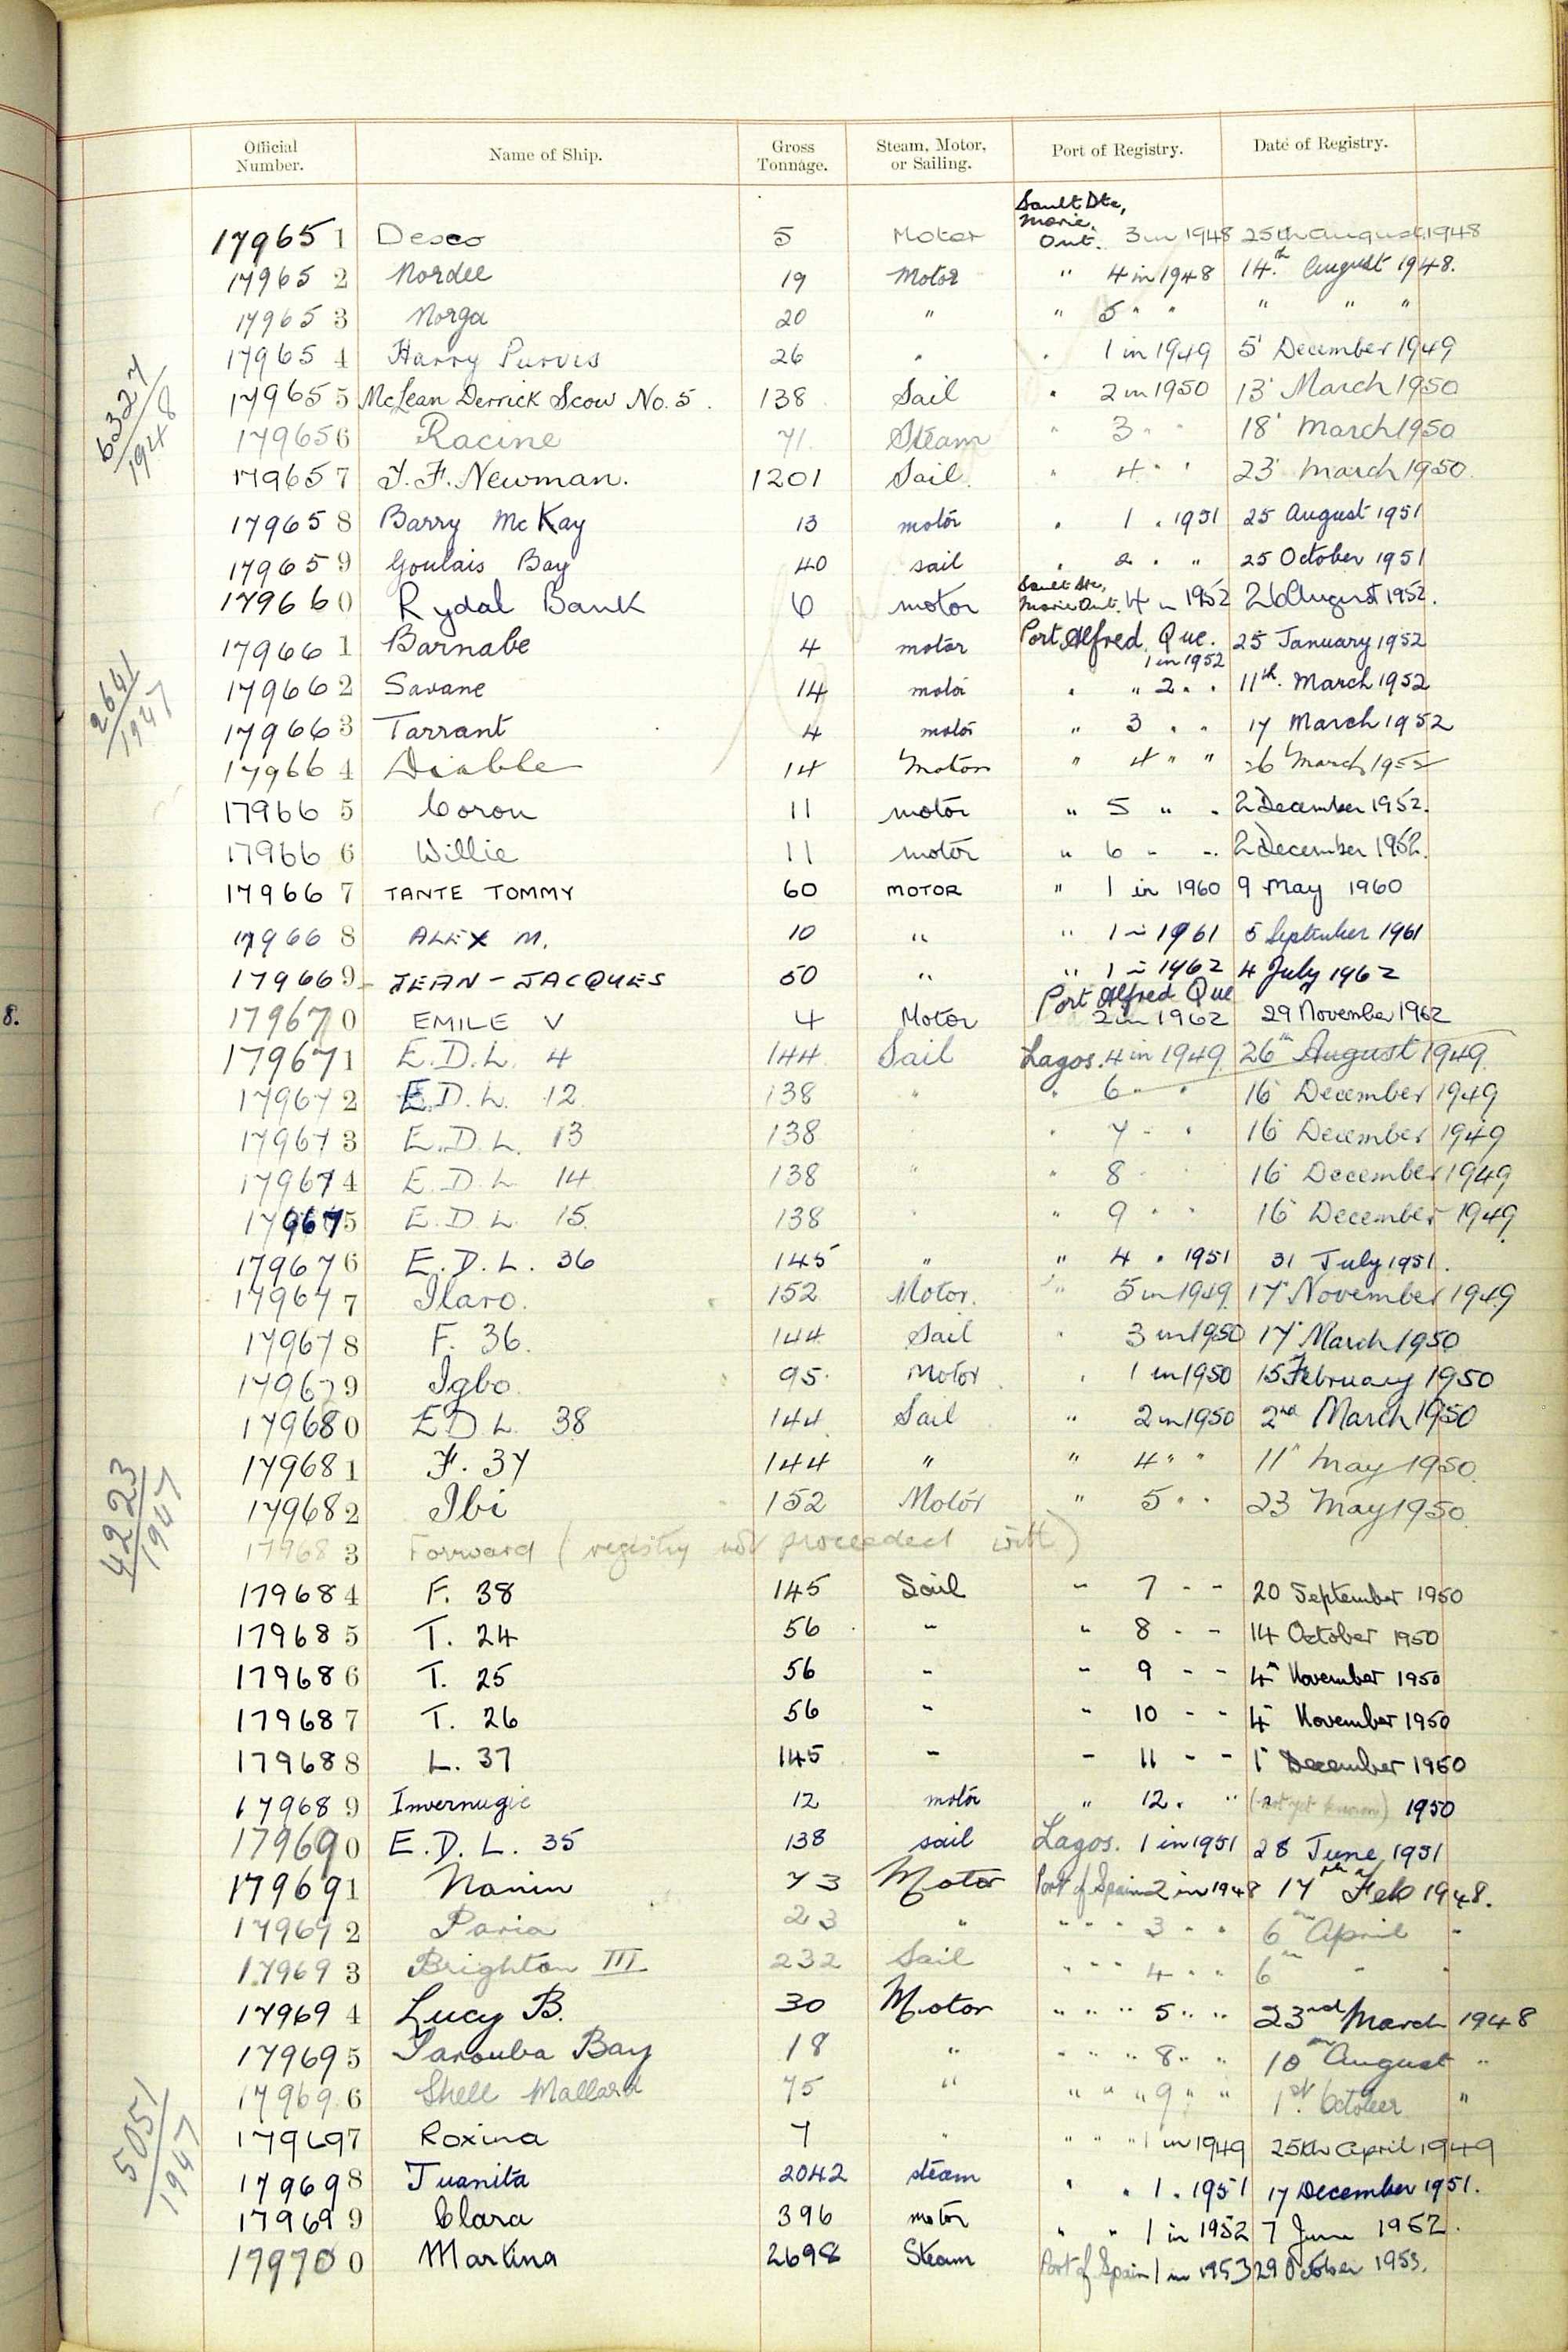 Official Number. Name of Ship. Gross Tonnage. Steam, Motor, or Sailing. Port of Registry. Date of Registry.
179651 Desco 5 Motor Sault Ste, Marie, Ont. 3 in 1948 25th August 1948
179652 Nordee 19 Motor " 4 in 1948 14th August 1948.
179653 Norga 20 " " 5 " " " " "
179654 Harry Purvis 26 " " 1 in 1949 5 December 1949
6327/1948
179655 McLean Derrick Scow No. 5. 138 Sail " 2 in 1950 13 March 1950
179656 Racine 71 Steam " 3 " " 18 March 1950
179657 J. F. Newman. 1201 Sail " 4 " " 23 March 1950.
179658 Barry McKay 13 motor " 1 " 1951 25 August 1951
179659 Goulais Bay 40 sail " 2 " " 25 October 1951
179660 Rydal Bank 6 motor Sault Ste, Marie Ont. 4 in 1952 26 August 1952.
179661 Barnabe 4 motor Port Alfred, Que. 1 in 1952 25 January 1952
2641/1947
179662 Savane 14 motor " " 2 " " 11th March 1952
179663 Tarrant 4 motor " 3 " " 17 March 1952
179664 Diable 14 Motor " 4 " " 26 March 1952
179665 Coron 11 motor " 5 " " 2 December 1952.
179666 Willie 11 motor " 6 " " 2 December 1952.
179667 TANTE TOMMY 60 MOTOR " 1 in 1960 9 May 1960
179668 ALEX M. 10 " " 1 in 1961 5 September 1961
179669 JEAN-JACQUES 50 " " 1 in 1962 4 July 1962
8. 179670 EMILE V 4 Motor Port Alfred Que 2 in 1962 29 November 1962
179671 E.D.L. 4 144 Sail Lagos. 4 in 1949 26th August 1949.
179672 E.D.L. 12 138 " " 6 " " 16 December 1949
179673 E.D.L. 13 138 " " 7 " " 16 December 1949
179674 E.D.L. 14 138 " " 8 " " 16 December 1949
179675 E.D.L. 15. 138 " " 9 " " 16 December 1949
179676 E.D.L. 36 145 " " 4 " 1951 31 July 1951.
179677 Ilaro. 152 Motor. " 5 in 1949 17 November 1949
179678 F. 36. 144 Sail " 3 in 1950 17 March 1950
179679 Igbo. 95 Motor " 1 in 1950 15 February 1950
179680 E.D.L. 38 144 Sail " 2 in 1950 2nd March 1950
179681 F. 37 144 " " 4 " " 11 May 1950.
4223/1947
179682 Ibi 152 Motor " 5 " " 23 May 1950.
179683 Forward (registry not proceeded with)
179684 F. 38 145 Sail " 7 " " 20 September 1950
179685 T. 24 56 " " 8 " " 14 October 1950
179686 T. 25 56 " " 9 " " 4 November 1950
179687 T. 26 56 " " 10 " " 4 November 1950
179688 L. 37 145 " " 11 " " 1 December 1950
179689 Invernugie 12 motor " 12 " " (not yet known) 1950
179690 E.D.L. 35 138 sail Lagos. 1 in 1951 28 June 1951
179691 Nanin 73 Motor Port of Spain 2 in 1948 17th Feb 1948.
179692 Paria 23 " " " " 3 " " 6th April "
179693 Brighton III 232 Sail " " " 4 " " 6th " "
179694 Lucy B. 30 Motor " " " 5 " " 23rd March 1948
179695 Tarouba Bay 18 " " " " 8 " " 10th August "
179696 Shell Mallard 75 " " " " 9 " " 1st October "
5051/1947
179697 Roxina 7 " " " " 1 in 1949 25th April 1949
179698 Juanita 2042 steam " " 1 " 1951 17 December 1951.
179699 Clara 396 motor " " 1 in 1952 7 June 1952.
179700 Martina 2698 Steam Port of Spain 1 in 1953 29 October 1953.